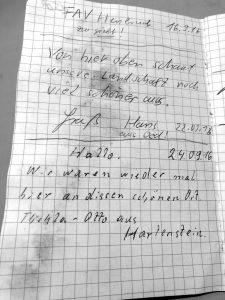 FAV 16.9.16
zu zweit!
Von hier oben schaut
unsere Landschaft noch
viel schöner aus.
Gruß Hans 22.09.16
aus
Hallo. 24.09.16
Wie waren wieder mal
hier an dissen schönen Ort
Otto aus
Hartenstein